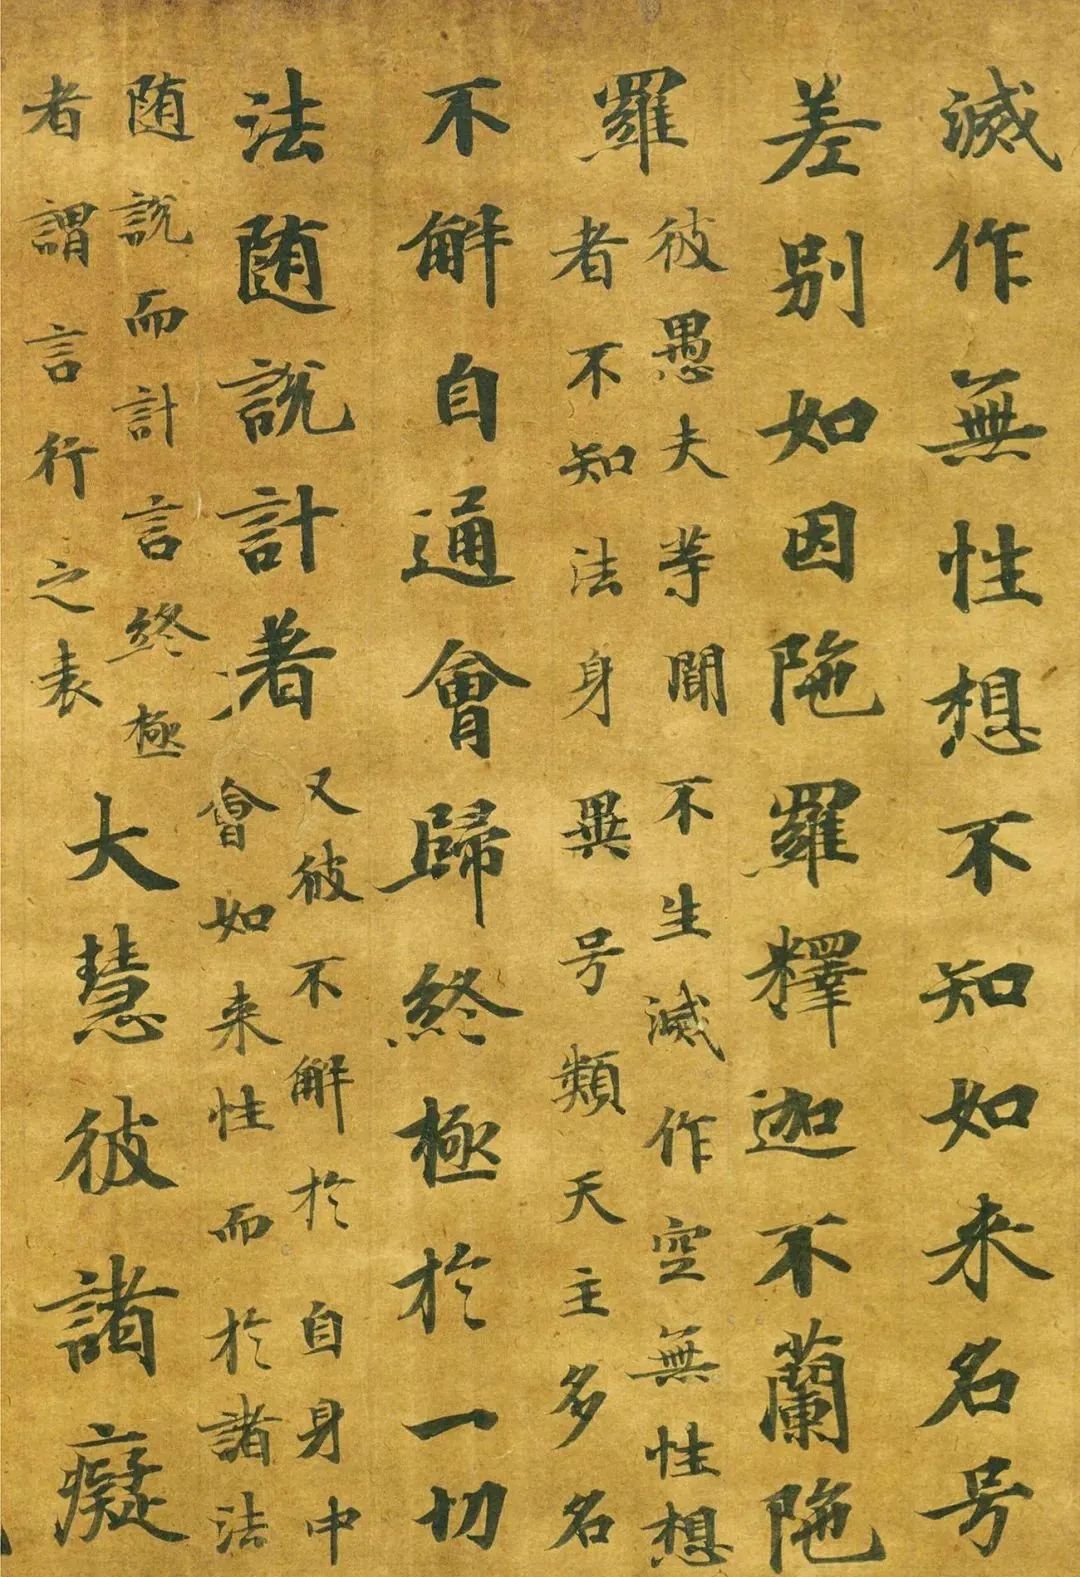 滅作無性想不知如来名号
差別如因陁羅釋迦不蘭陁
羅
彼愚夫等聞不生滅作空無性想
者不知法身異号類天主多名
不解自通會歸終極於一切
法随說計著
又彼不解於自身中
會如来性而於諸法
随說而計言終極
者謂言行之表
大慧彼諸癡